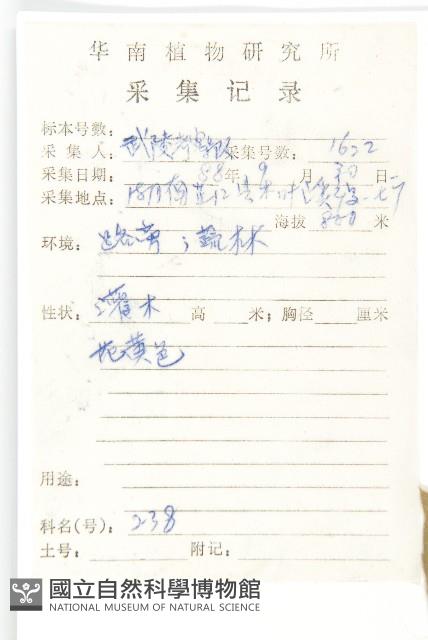 华南植物研究所
采集记录
标本号数:
采集人: 武陵考察队 采集号数: 1622
采集日期: 88年9月30日
采集地点:
海拔 820 米
环境: 路旁;疏林
性状: 灌木 高 米;胸径 厘米
花黄色
用途:
科名(号): 238
土号: 附记:
國立自然科學博物館
NATIONAL MUSEUM OF NATURAL SCIENCE